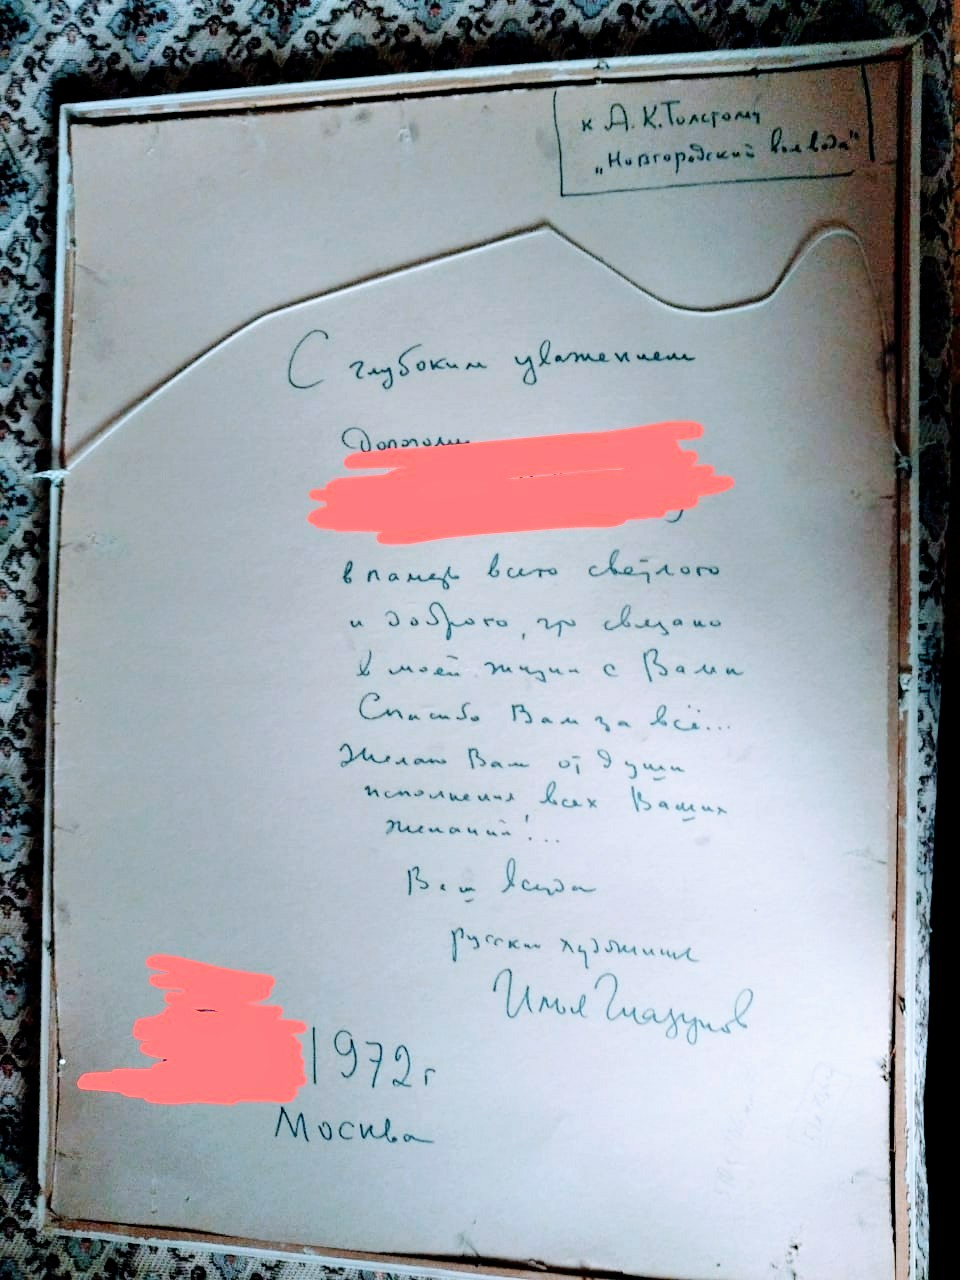 к А.К.Толстому
„Новгородский воевода"
С глубоким уважением
Дорогому
в память всего светлого
и доброго, что связано
в моей жизни с Вами
Спасибо Вам за всё...
Желаю Вам от души
исполнения всех Ваших
желаний!...
Ваш всегда
русский художник
Илья Глазунов
1972 г
Москва